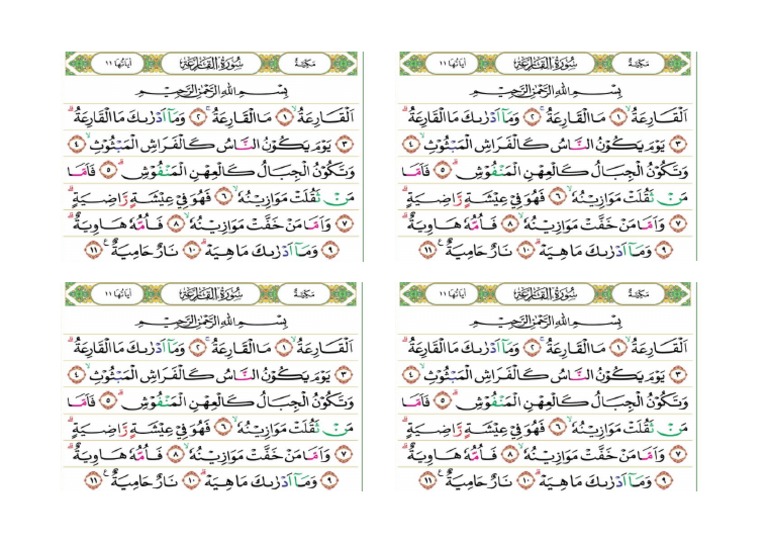 مكيّة سورة القارعة اياتها ١١
بِسْمِ اللّٰهِ الرَّحْمٰنِ الرَّحِيْمِ
اَلْقَارِعَةُۙ ١ مَا الْقَارِعَةُۚ ٢ وَمَآ اَدْرٰىكَ مَا الْقَارِعَةُۗ
٣ يَوْمَ يَكُوْنُ النَّاسُ كَالْفَرَاشِ الْمَبْثُوْثِۙ ٤
وَتَكُوْنُ الْجِبَالُ كَالْعِهْنِ الْمَنْفُوْشِۗ ٥ فَاَمَّا
مَنْ ثَقُلَتْ مَوَازِيْنُهٗۙ ٦ فَهُوَ فِيْ عِيْشَةٍ رَّاضِيَةٍۗ
٧ وَاَمَّا مَنْ خَفَّتْ مَوَازِيْنُهٗۙ ٨ فَاُمُّهٗ هَاوِيَةٌۗ
٩ وَمَآ اَدْرٰىكَ مَا هِيَهْۗ ١٠ نَارٌ حَامِيَةٌ ࣖ ١١
مكيّة سورة القارعة اياتها ١١
بِسْمِ اللّٰهِ الرَّحْمٰنِ الرَّحِيْمِ
اَلْقَارِعَةُۙ ١ مَا الْقَارِعَةُۚ ٢ وَمَآ اَدْرٰىكَ مَا الْقَارِعَةُۗ
٣ يَوْمَ يَكُوْنُ النَّاسُ كَالْفَرَاشِ الْمَبْثُوْثِۙ ٤
وَتَكُوْنُ الْجِبَالُ كَالْعِهْنِ الْمَنْفُوْشِۗ ٥ فَاَمَّا
مَنْ ثَقُلَتْ مَوَازِيْنُهٗۙ ٦ فَهُوَ فِيْ عِيْشَةٍ رَّاضِيَةٍۗ
٧ وَاَمَّا مَنْ خَفَّتْ مَوَازِيْنُهٗۙ ٨ فَاُمُّهٗ هَاوِيَةٌۗ
٩ وَمَآ اَدْرٰىكَ مَا هِيَهْۗ ١٠ نَارٌ حَامِيَةٌ ࣖ ١١
مكيّة سورة القارعة اياتها ١١
بِسْمِ اللّٰهِ الرَّحْمٰنِ الرَّحِيْمِ
اَلْقَارِعَةُۙ ١ مَا الْقَارِعَةُۚ ٢ وَمَآ اَدْرٰىكَ مَا الْقَارِعَةُۗ
٣ يَوْمَ يَكُوْنُ النَّاسُ كَالْفَرَاشِ الْمَبْثُوْثِۙ ٤
وَتَكُوْنُ الْجِبَالُ كَالْعِهْنِ الْمَنْفُوْشِۗ ٥ فَاَمَّا
مَنْ ثَقُلَتْ مَوَازِيْنُهٗۙ ٦ فَهُوَ فِيْ عِيْشَةٍ رَّاضِيَةٍۗ
٧ وَاَمَّا مَنْ خَفَّتْ مَوَازِيْنُهٗۙ ٨ فَاُمُّهٗ هَاوِيَةٌۗ
٩ وَمَآ اَدْرٰىكَ مَا هِيَهْۗ ١٠ نَارٌ حَامِيَةٌ ࣖ ١١
مكيّة سورة القارعة اياتها ١١
بِسْمِ اللّٰهِ الرَّحْمٰنِ الرَّحِيْمِ
اَلْقَارِعَةُۙ ١ مَا الْقَارِعَةُۚ ٢ وَمَآ اَدْرٰىكَ مَا الْقَارِعَةُۗ
٣ يَوْمَ يَكُوْنُ النَّاسُ كَالْفَرَاشِ الْمَبْثُوْثِۙ ٤
وَتَكُوْنُ الْجِبَالُ كَالْعِهْنِ الْمَنْفُوْشِۗ ٥ فَاَمَّا
مَنْ ثَقُلَتْ مَوَازِيْنُهٗۙ ٦ فَهُوَ فِيْ عِيْشَةٍ رَّاضِيَةٍۗ
٧ وَاَمَّا مَنْ خَفَّتْ مَوَازِيْنُهٗۙ ٨ فَاُمُّهٗ هَاوِيَةٌۗ
٩ وَمَآ اَدْرٰىكَ مَا هِيَهْۗ ١٠ نَارٌ حَامِيَةٌ ࣖ ١١